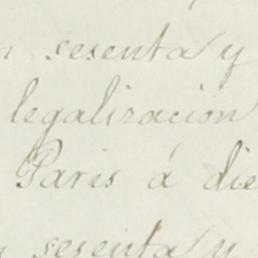 n sesenta y
legalizacion
Paris á die
n sesenta y